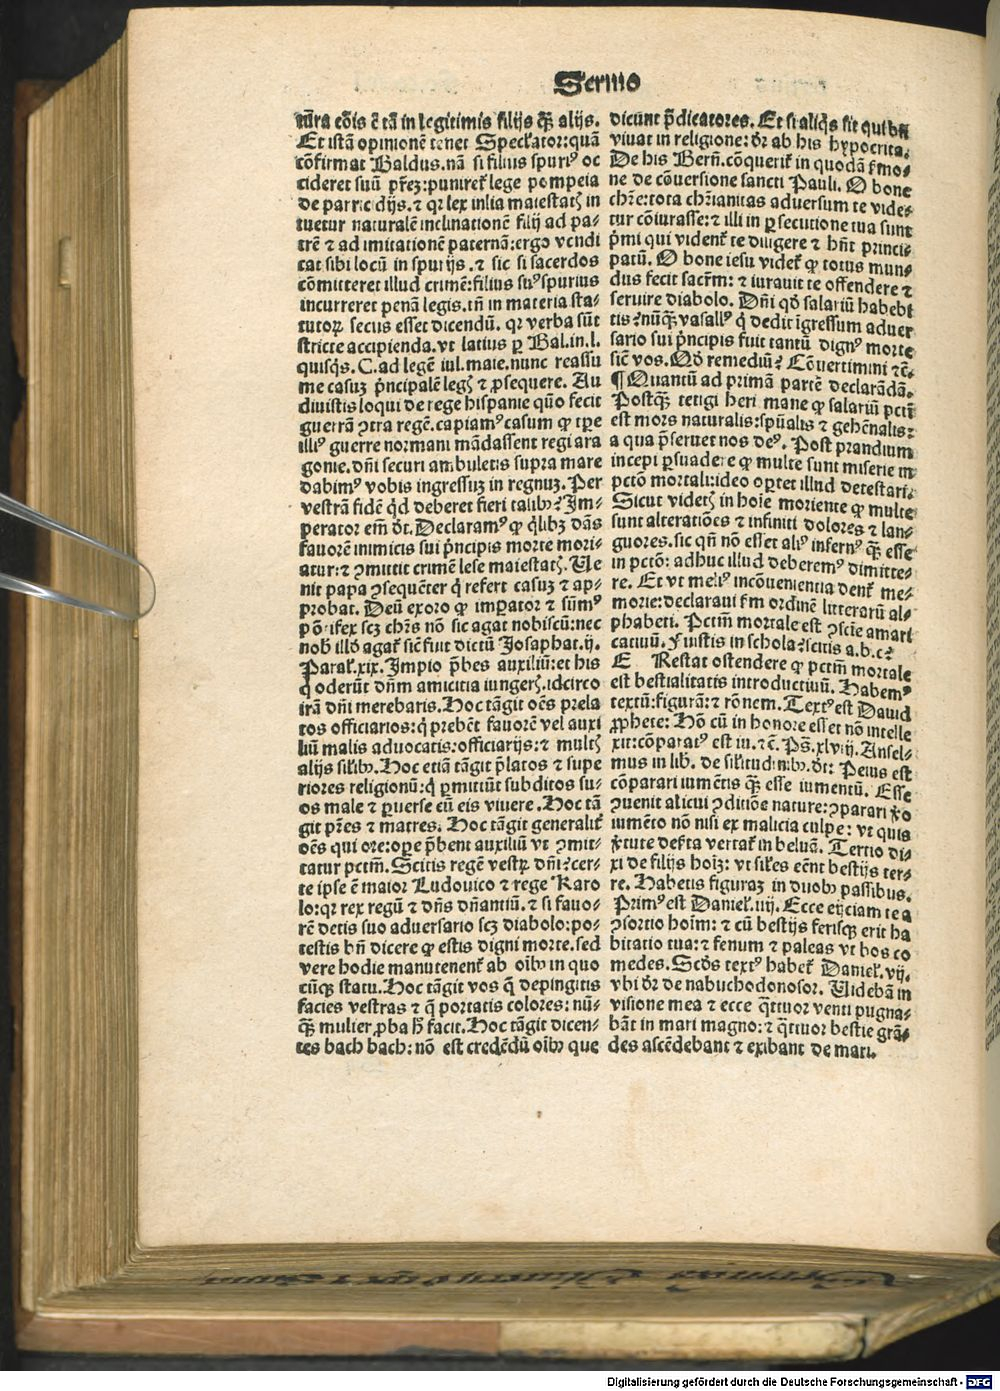 Sermo
tũra cõis ẽ tã in legitimis filijs q̃ꝫ alijs.
Et istã opinionẽ tenet Speclator: quã
cõfirmat Baldus. nã si filius spuriꝰ oc
cideret suũ p̃rẽꝫ: puniret̃ lege pompeia
de parricidijs. ⁊ qꝛ lex iulia maiestatꝭ in
tuetur naturalẽ inclinationẽ filij ad pa-
trẽ ⁊ ad imitationẽ paternã: ergo vendi
cat sibi locũ in spurijs. ⁊ sic si sacerdos
cõmitteret illud crimẽ: filius suꝰ spurius
incurreret penã legis. tñ in materia sta-
tutoꝝ secus esset dicendũ. qꝛ verba sũt
stricte accipienda. vt latius ꝑ Bal. in. l.
quisq̃s. C. ad legẽ iul. maie. nunc reassu
me casuꝫ p̃ncipalẽ legꝭ ⁊ ꝓsequere. Au
diuistis loqui de rege hispanie qũo fecit
guerrã ꝯtra regẽ. capiamꝰ casum ꝙ tꝑe
illiꝰ guerre normani mãdassent regi ara
gonie. dñi securi ambuletis supra mare
dabimꝰ vobis ingressuꝫ in regnuꝫ. Per
vestrã fidẽ qͥd deberet fieri talibꝰ? Im-
perator em̃ dt̃. Declaramꝰ ꝙ qͥlibꝫ dãs
fauorẽ inimicis sui p̃ncipis morte mori-
atur: ⁊ ꝯmittit crimẽ lese maiestatꝭ. Ue
nit papa ꝯsequẽter qͥ refert casuꝫ ⁊ ap-
probat. Deũ exoro ꝙ imꝑator ⁊ sũmꝰ
põtifex scꝫ chr̃s nõ sic agat nobiscũ: nec
nob̃ illð agat̃ sic̃ fuit dictũ Josaphat. ij.
Paral̃. xix. Impio p̃bes auxiliũ: et his
qͥ oderũt dñm amicitia iungerꝭ. idcirco
irã dñi merebaris. Hoc tãgit oẽs prela
tos officiarios: qͥ prebẽt fauorẽ vel auxi
liũ malis aduocatis: officiarijs: ⁊ multꝭ
alijs sil̃ibꝰ. Hoc etiã tãgit p̃latos ⁊ supe
riores religionũ: qͥ ꝑmittũt subditos su-
os male ⁊ ꝑuerse cũ eis viuere. Hoc tã
git p̃res ⁊ matres. Hoc tãgit generalit̃
oẽs qui ore: oꝑe p̃bent auxiliũ vt ꝯmit-
tatur pctm̃. Scitis regẽ vestꝝ dñi? cer-
te ipse ẽ maior Ludouico ⁊ rege Karo
lo: qꝛ rex regũ ⁊ dñs dñantiũ. ⁊ si fauo-
rẽ detis suo aduersario scꝫ diabolo: po-
testis bñ dicere ꝙ estis digni morte. sed
vere hodie manutenent̃ ab oĩbꝰ in quo
cũqꝫ statu. Hoc tãgit vos q̃ depingitis
facies vestras ⁊ q̃ portatis colores: nũ-
q̃ꝫ mulier ꝓba h̃ facit. Hoc tãgit dicen-
tes bach bach: nõ est credẽdũ oĩbꝰ que
dicunt p̃dicatores. Et si aliqͥs sit qui bñ
viuat in religione: dr̃ ab his hypocrita.
De his Berñ. cõquerit̃ in quodã s̃mo-
ne de cõuersione sancti Pauli. O bone
chr̃e: tota chr̃ianitas aduersum te vide-
tur cõiurasse: ⁊ illi in ꝑsecutione tua sunt
p̃mi qui vident̃ te diligere ⁊ hñt princi-
patũ. O bone iesu videt̃ ꝙ totus mun-
dus fecit sacr̃m: ⁊ iurauit te offendere ⁊
seruire diabolo. Dñi qð salariũ habebi
tis? nũq̃ꝫ vasallꝰ qͥ dedit ĩgressum aduer
sario sui p̃ncipis fuit tantũ dignꝰ morte
sic̃ vos. Qð remediũ? Cõuertimini ⁊c̃.
¶ Quantũ ad primã partẽ declarãdã.
Postq̃ꝫ tetigi heri mane ꝙ salariũ pcti̇
est mors naturalis: spũalis ⁊ gehẽnalis:
a qua p̃seruet nos deꝰ. Post prandium
incepi ꝑsuadere ꝙ multe sunt miserie in
pctõ mortali: ideo oꝑtet illud detestari.
Sicut videtꝭ in hoĩe moriente ꝙ multe
sunt alteratiões ⁊ infiniti dolores ⁊ lan-
guores. sic qñ nõ esset aliꝰ infernꝰ q̃ꝫ esse
in pctõ: adhuc illud deberemꝰ dimitte-
re. Et vt meliꝰ incõuenientia dent̃ me-
morie: declaraui s̃m ordinẽ litterarũ al-
phabeti. Pctm̃ mortale est ꝯscie amari
catiuũ. Fuistis in schola? scitis a. b. c?
E Restat ostendere ꝙ pctm̃ mortale
est bestialitatis introductiuũ. Habemꝰ
textũ: figurã: ⁊ rõnem. Textꝰ est Dauid
ꝓphete: Hõ cũ in honore esset nõ intelle
xit: cõparatꝰ est iu. ⁊c̃. Ps̃. xlviij. Ansel-
mus in lib̃. de sil̃itudinibꝰ. dt̃: Peius est
cõparari iumẽtis q̃ꝫ esse iumentũ. Esse
ꝯuenit alicui ꝯditiõe nature: ꝯparari ꝟo
iumẽto nõ nisi ex malicia culpe: vt quis
ꝟtute defta vertat̃ in beluã. Tertio di-
xi de filijs hoĩꝫ: vt sil̃es eẽnt bestijs ter-
re. Habetis figuraꝫ in duobꝰ passibus.
Primꝰ est Daniel̃. iiij. Ecce eijciam te a
ꝯsortio hoĩm: ⁊ cũ bestijs ferisqꝫ erit ha
bitatio tua: ⁊ fenum ⁊ paleas vt bos co
medes. Scðs textꝰ habet̃ Daniel̃. vij.
vbi dr̃ de nabuchodonosor. Uidebã in
visione mea ⁊ ecce q̃ttuor venti pugna-
bãt in mari magno: ⁊ q̃ttuor bestie grã-
des ascẽdebant ⁊ exibant de mari.
Digitalisierung gefördert durch die Deutsche Forschungsgemeinschaft - DFG